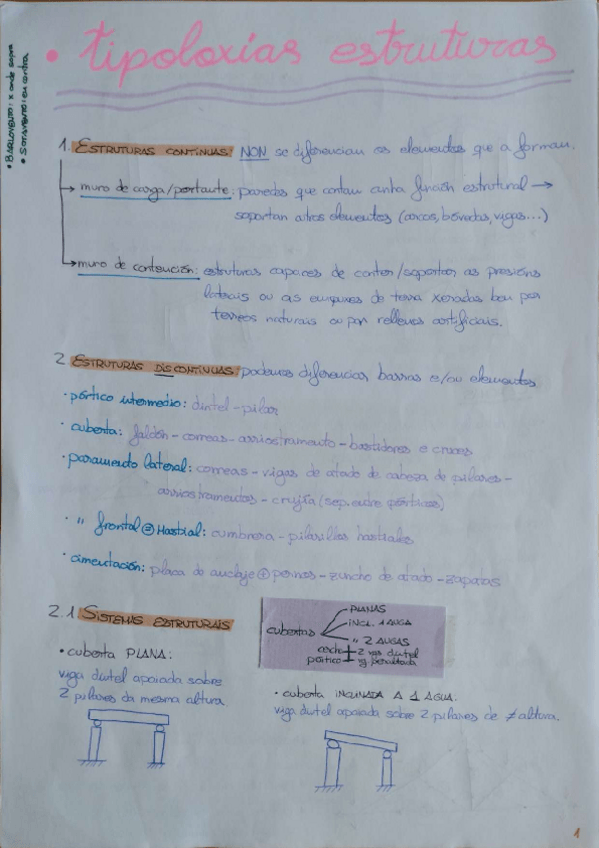 • BARLOVENTO: x onde sopra
• SOTAVENTO: en contra
• tipoloxías estruturas
1. ESTRUTURAS CONTINUAS: NON se diferencian os elementos que a forman.
→ muro de carga/portante: paredes que contan cunha función estrutural →
soportan outros elementos (arcos, bóvedas, vigas...)
→ muro de contención: estruturas capaces de conter/soportar as presións
laterais ou as empuxes de terra xeradas ben por
terreos naturais ou por rellenos artificiais.
2. ESTRUTURAS DISCONTINUAS: podemos diferenciar barras e/ou elementos
· pórtico intermedio: dintel - pilar
· cuberta: faldón - correas - arriostramento - bastidores e cruces
· paramento lateral: correas - vigas de atado de cabeza de pilares -
arriostramentos - crujía (sep. entre pórticos)
· " frontal = Hastial: cumbrera - pilarillos hastiales
· cimentación: placa de anclaje + pernos - zuncho de atado - zapatas
2.1. SISTEMAS ESTRUTURAIS
cubertas
PLANAS
INCL. 1 AUGA
" 2 AUGAS
pórtico
• cuberta PLANA:
viga dintel apoiada sobre
2 pilares da mesma altura
· cuberta INCLINADA A 1 AGUA:
viga dintel apoiada sobre 2 pilares de ≠ altura.
1